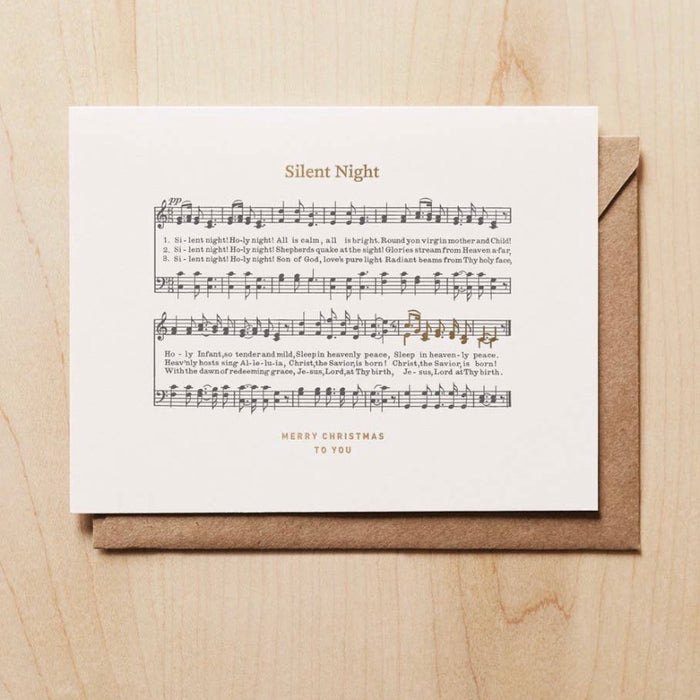 Silent Night
pp
1. Si-lent night! Ho-ly night! All is calm, all is bright. Round yon virgin mother and Child!
2. Si-lent night! Ho-ly night! Shepherds quake at the sight! Glories stream from Heaven a-far,
3. Si-lent night! Ho-ly night! Son of God, love's pure light Radiant beams from Thy holy face,
Ho - ly Infant, so tender and mild, Sleep in heavenly peace, Sleep in heaven-ly peace.
Heav'nly hosts sing Al-le-lu-ia, Christ, the Savior, is born! Christ, the Savior, is born!
With the dawn of redeeming grace, Je-sus, Lord, at Thy birth, Je-sus, Lord at Thy birth.
MERRY CHRISTMAS
TO YOU